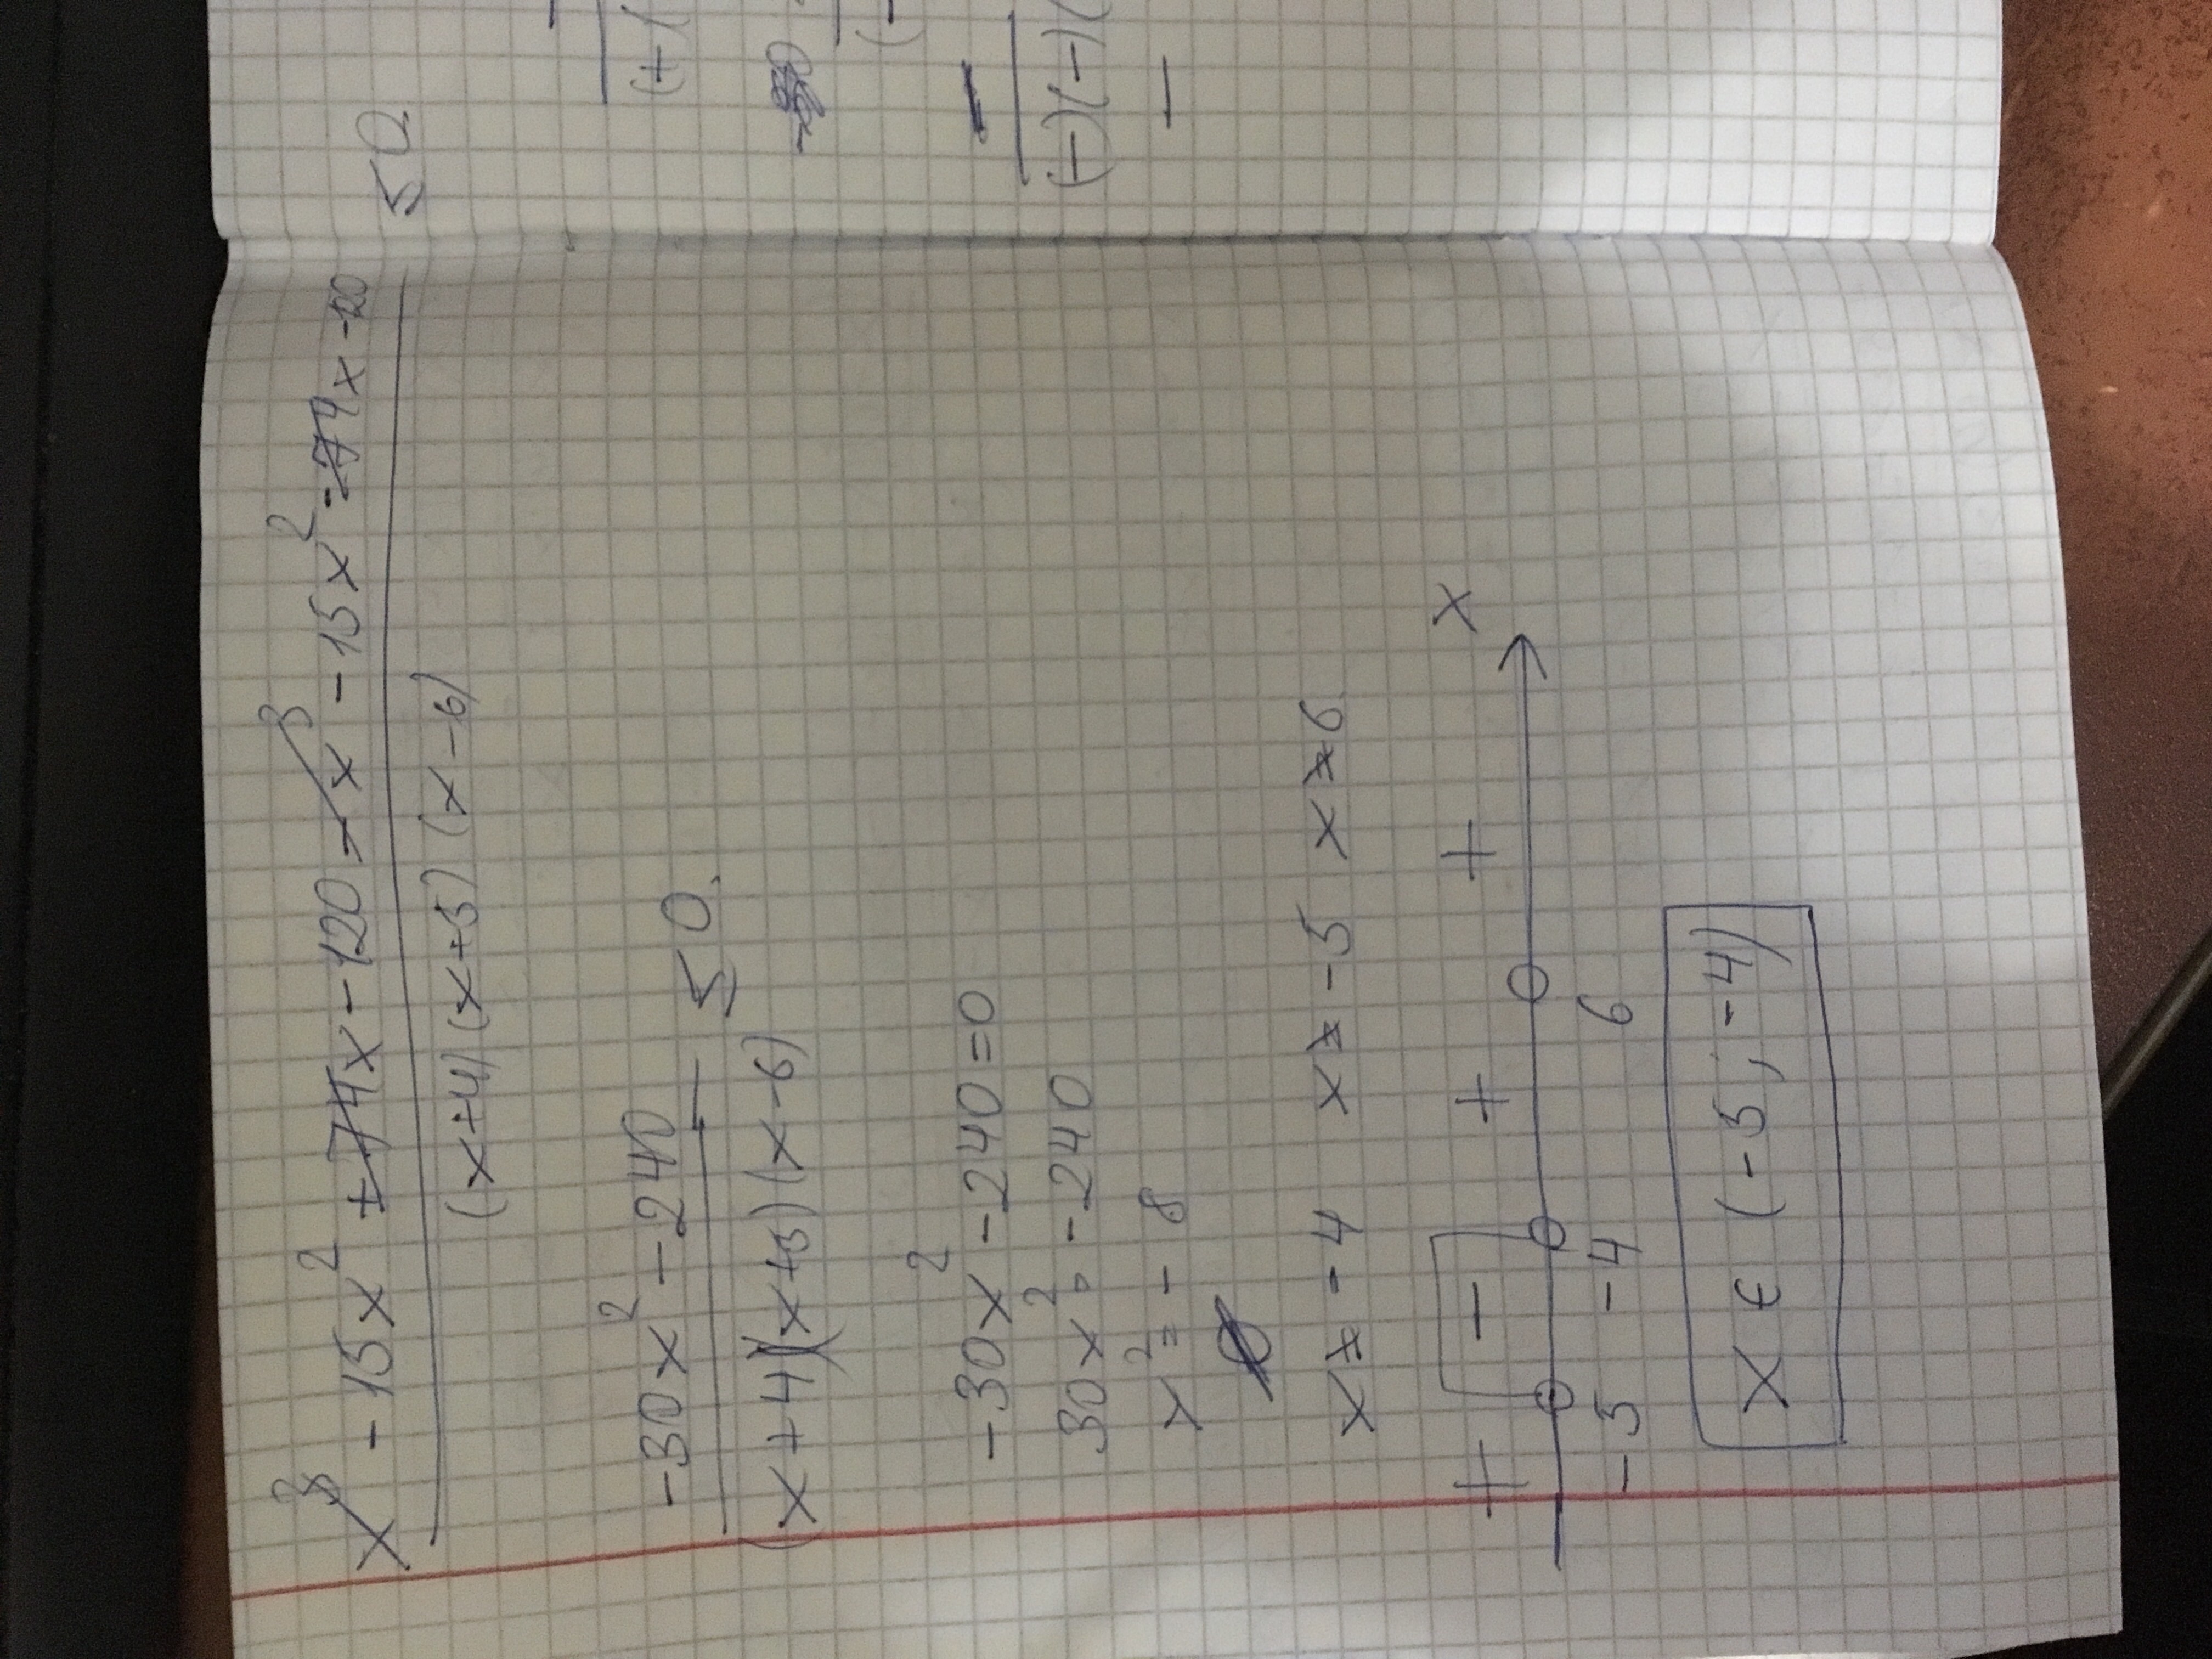 x³ - 15x² + 74x - 120 - x³ - 15x² - 74x - 120 ≤ 0
(x+4)(x+5)(x-6)
-30x² - 240 ≤ 0
(x+4)(x+5)(x-6)
-30x² - 240 = 0
30x² = -240
x² = -8
∅
x ≠ -4 x ≠ -5 x ≠ 6
+ - + + x
-5 -4 6
x ∈ (-5; -4)
(+)(
(-
-
(-)(-)(
-